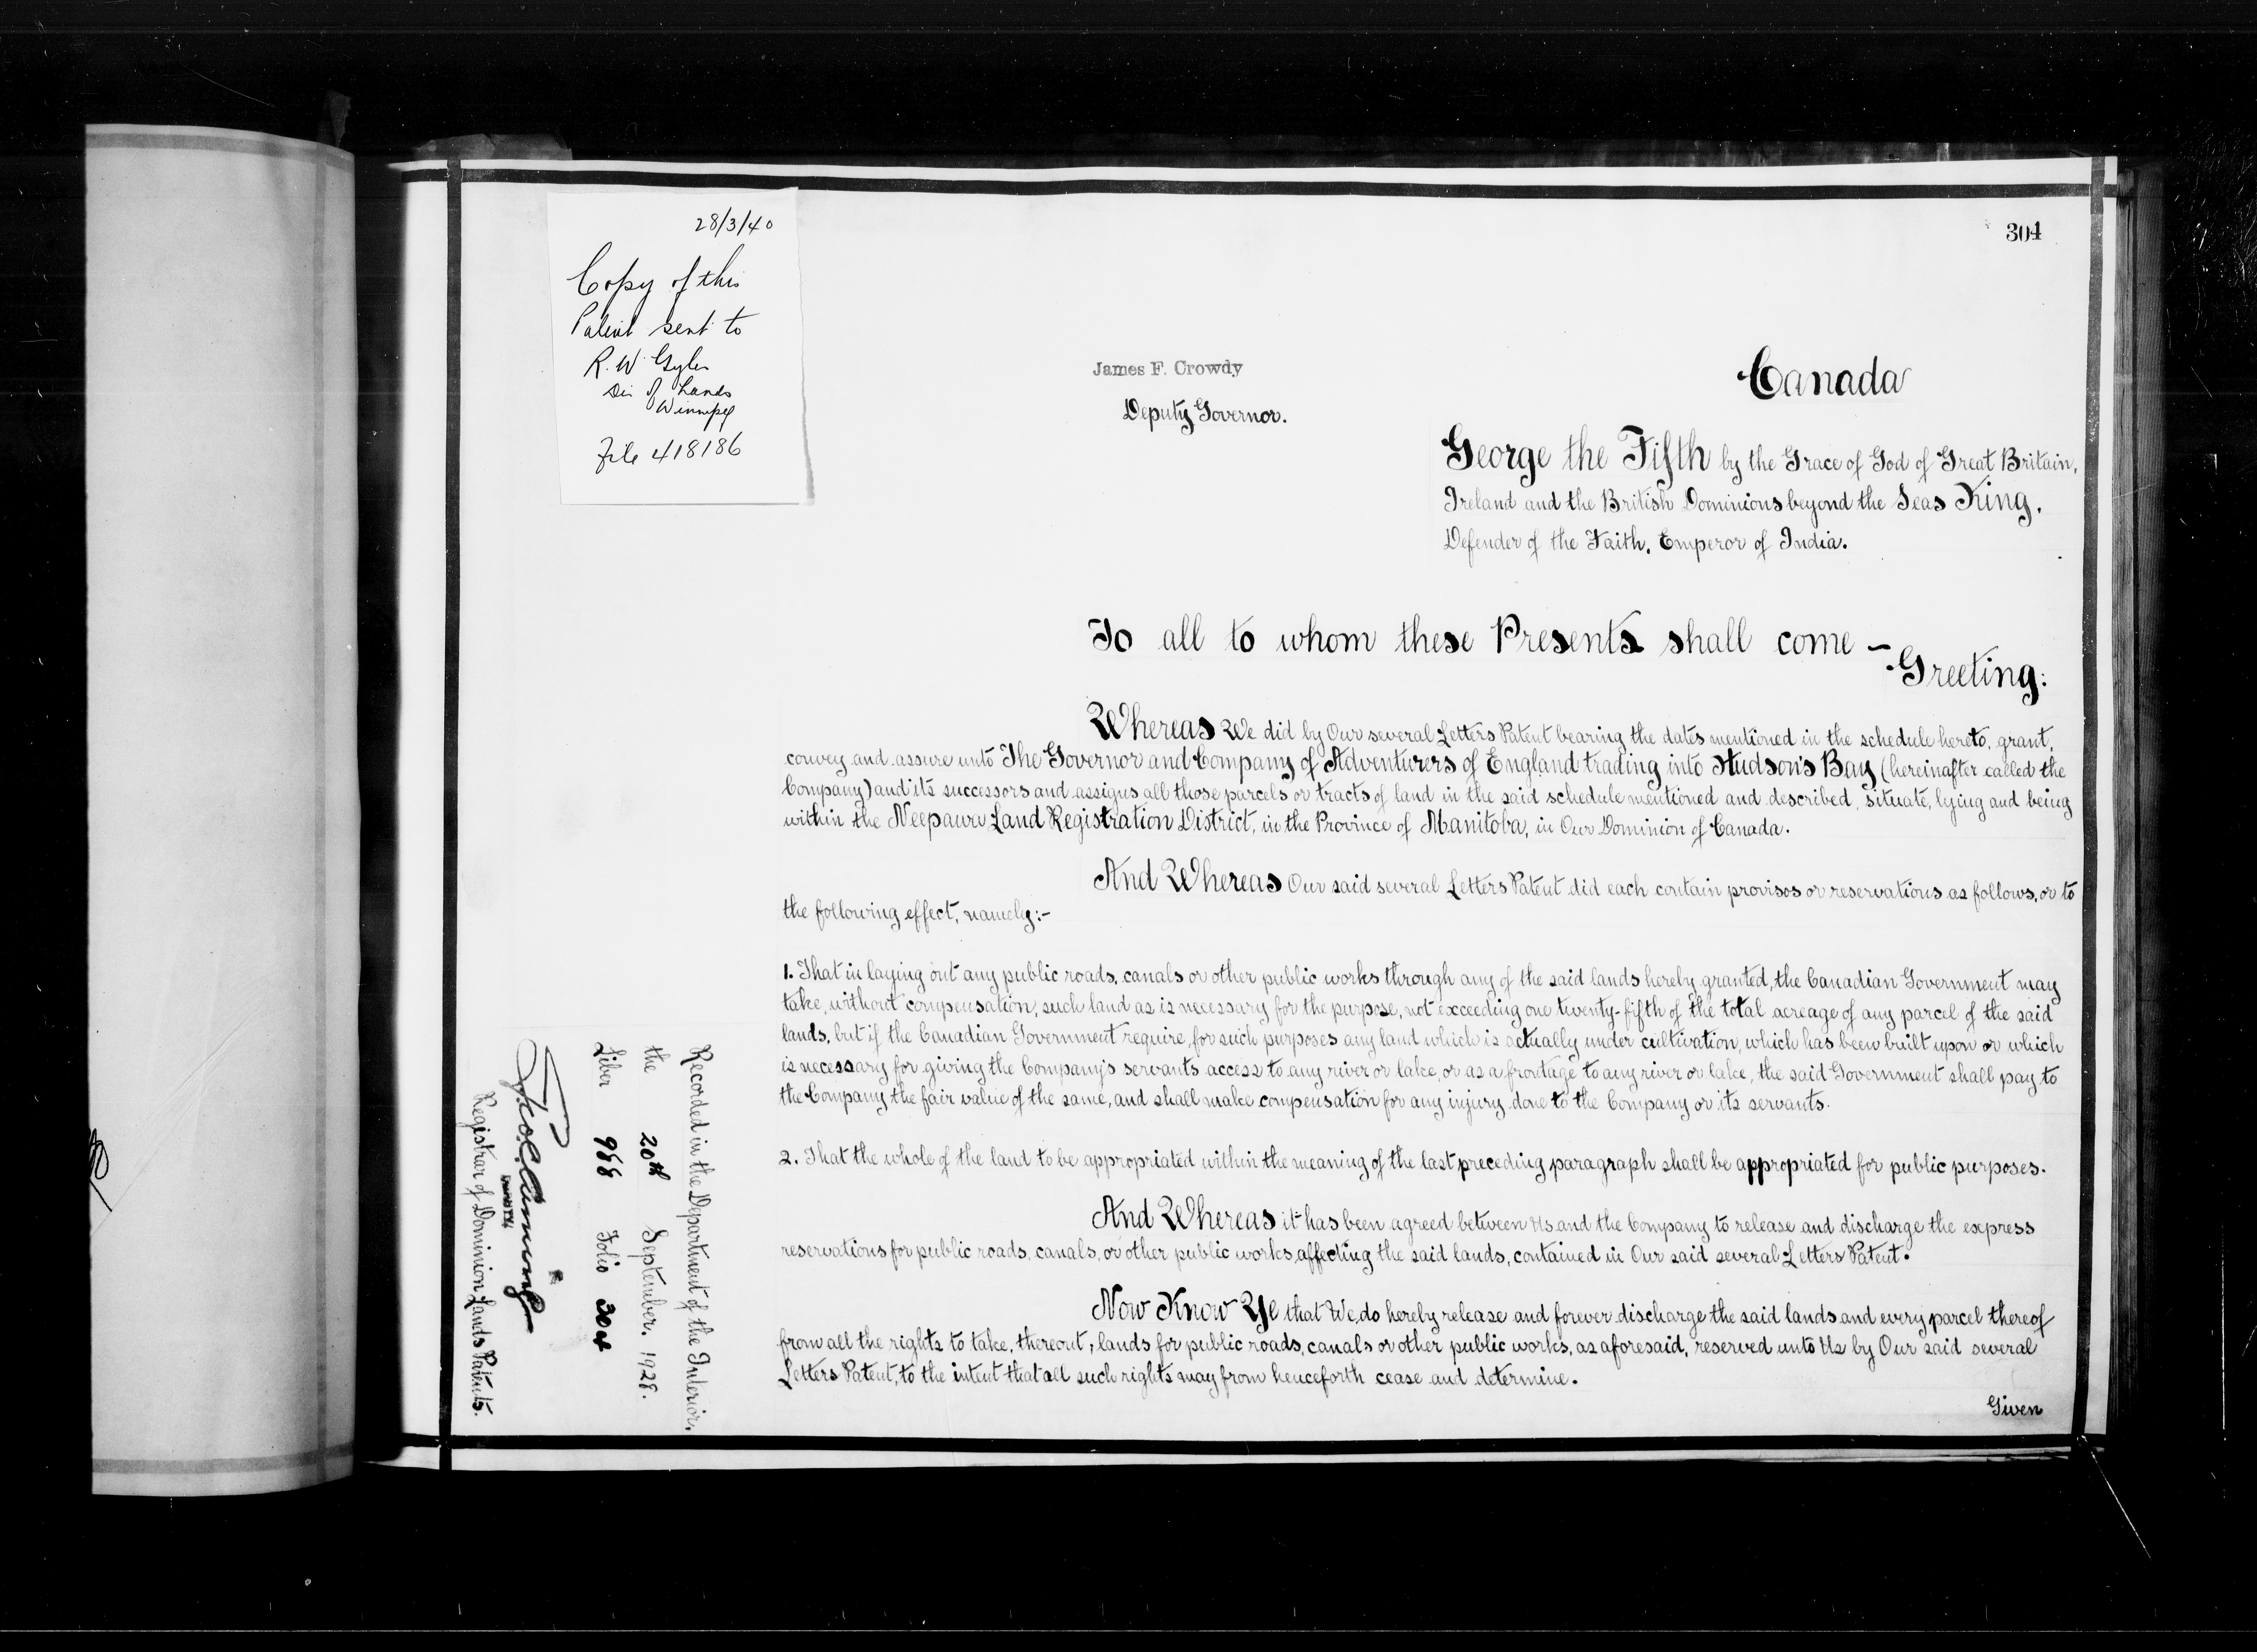 28/3/40
Copy of this
Patent sent to
R. W. Gyles
Dir of Lands
Winnipeg
File 418186
304
James F. Crowdy
Deputy Governor.
Canada
George the Fifth by the Grace of God of Great Britain,
Ireland and the British Dominions beyond the Seas King,
Defender of the Faith, Emperor of India.
To all to whom these Presents shall come –
Greeting:
Whereas We did by Our several Letters Patent bearing the dates mentioned in the schedule hereto, grant,
convey and assure unto The Governor and Company of Adventurers of England trading into Hudson's Bay (hereinafter called the
Company) and its successors and assigns all those parcels or tracts of land in the said schedule mentioned and described, situate, lying and being
within the Neepawa Land Registration District, in the Province of Manitoba, in Our Dominion of Canada.
And Whereas Our said several Letters Patent did each contain provisos or reservations as follows, or to
the following effect, namely:-
1. That in laying out any public roads, canals or other public works through any of the said lands hereby granted, the Canadian Government may
take, without compensation, such land as is necessary for the purpose, not exceeding one twenty-fifth of the total acreage of any parcel of the said
lands, but if the Canadian Government require, for such purposes any land which is actually under cultivation, which has been built upon or which
is necessary for giving the Company's servants access to any river or lake, or as a frontage to any river or lake, the said Government shall pay to
the Company the fair value of the same, and shall make compensation for any injury done to the Company or its servants.
2. That the whole of the land to be appropriated within the meaning of the last preceding paragraph shall be appropriated for public purposes.
And Whereas it has been agreed between Us and the Company to release and discharge the express
reservations for public roads, canals, or other public works, affecting the said lands, contained in Our said several Letters Patent.
Now Know Ye that We do hereby release and forever discharge the said lands and every parcel thereof
from all the rights to take, thereout, lands for public roads, canals or other public works, as aforesaid, reserved unto Us by Our said several
Letters Patent, to the intent that all such rights may from henceforth cease and determine.
Given
Recorded in the Department of the Interior,
the 20th September, 1928.
Liber 988 Folio 304
Registrar of Dominion Lands Patents.